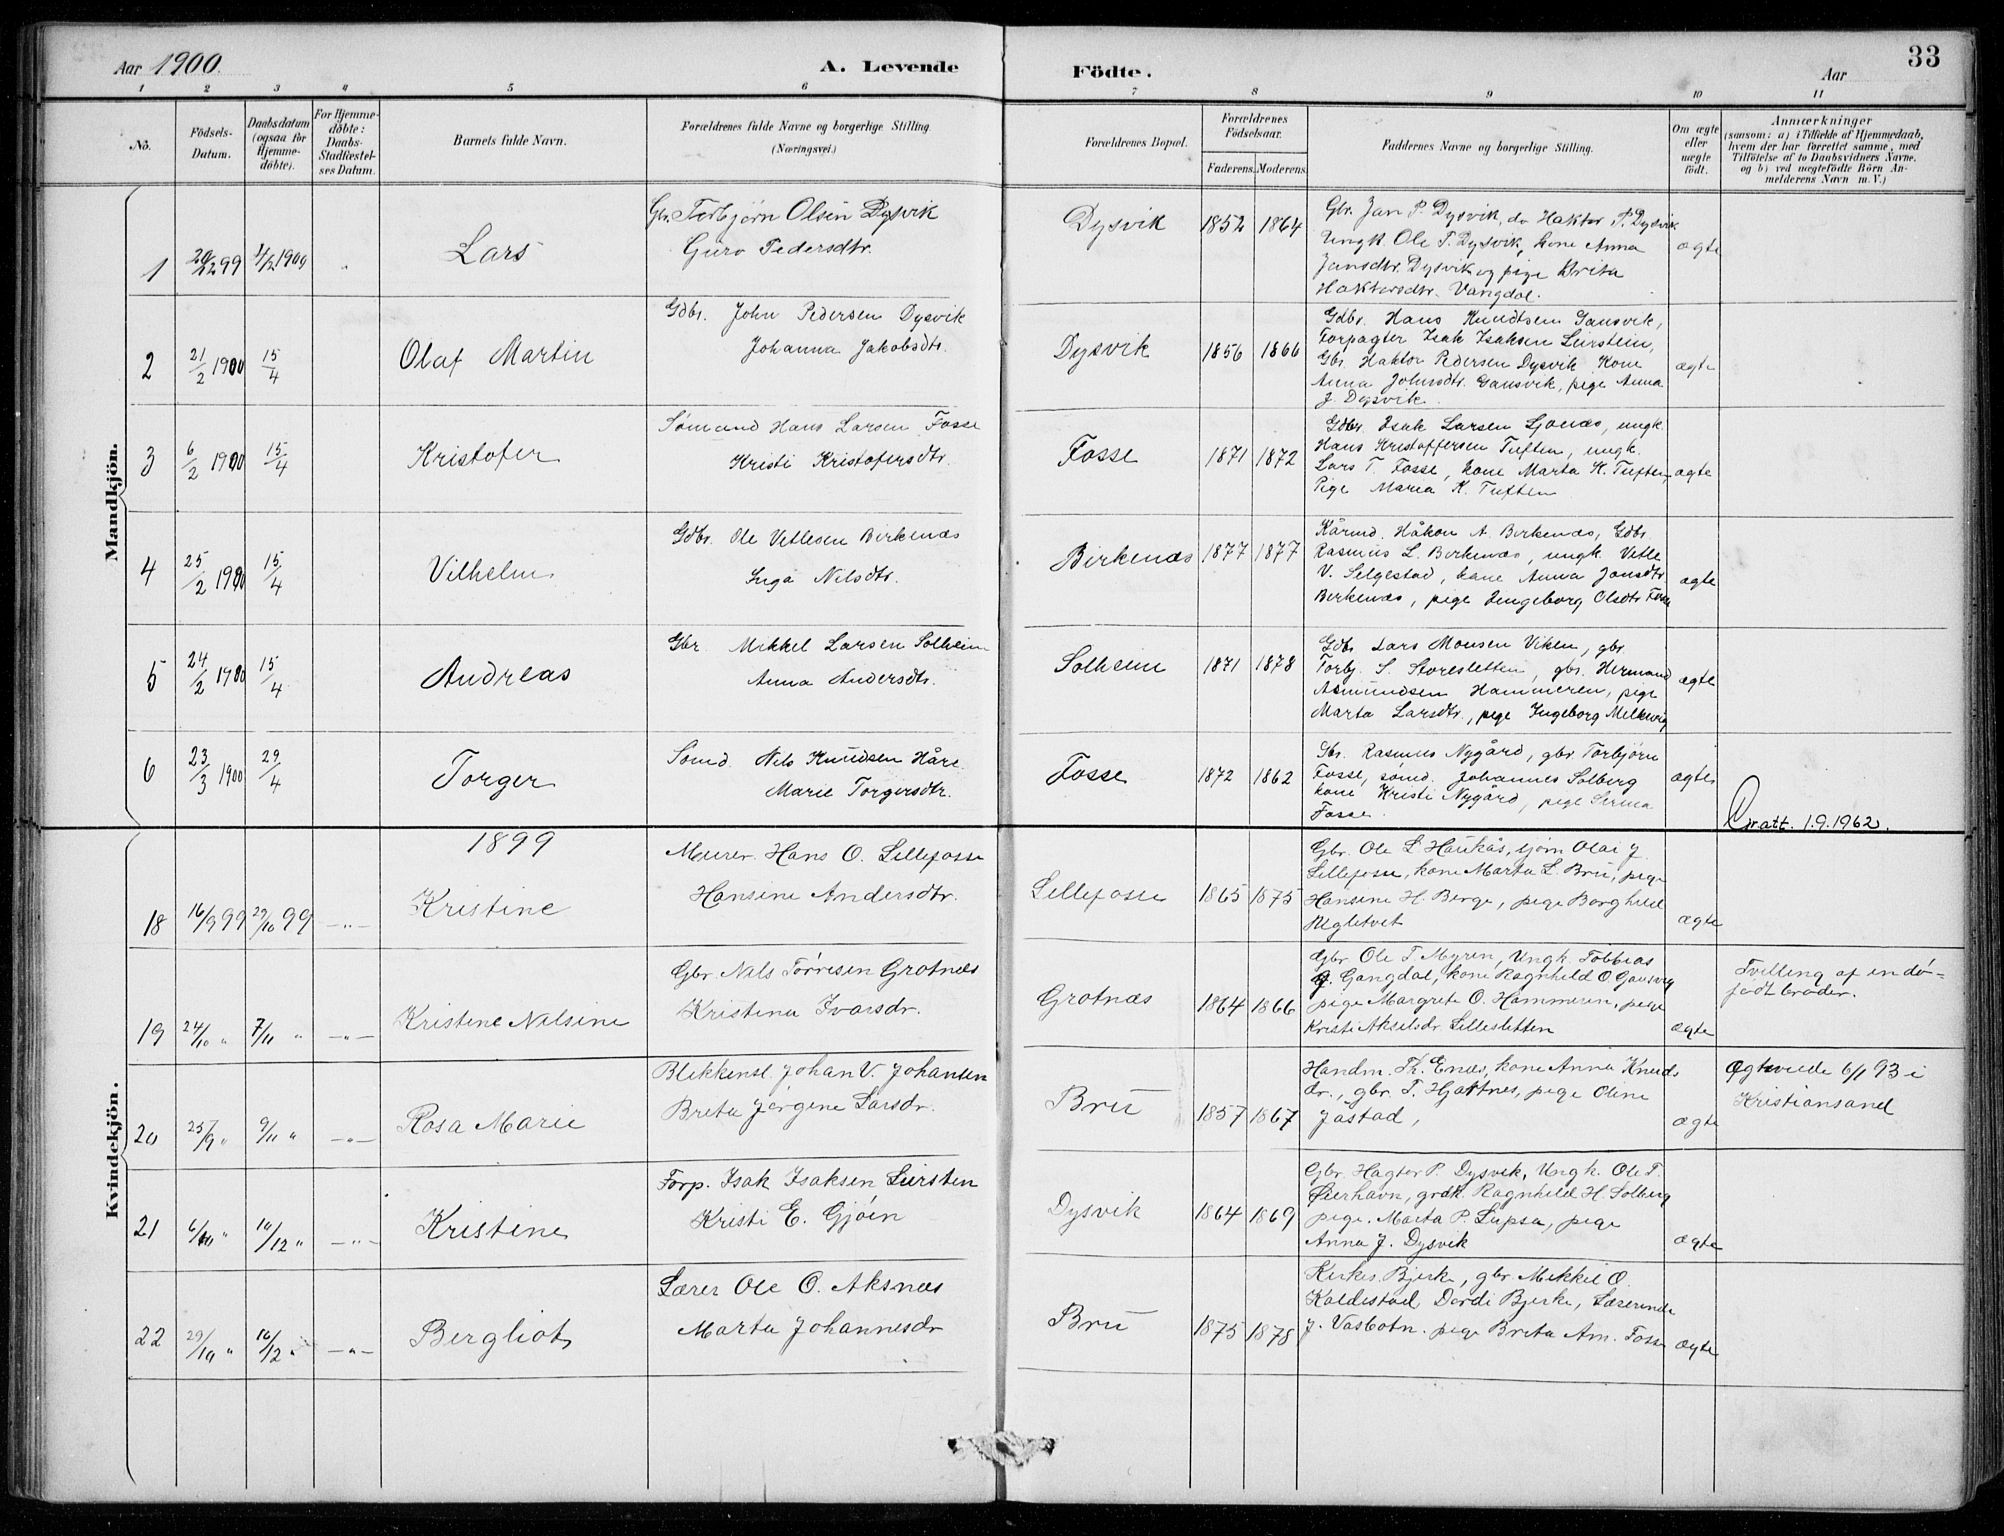 Aar 1900.
A. Levende
Födte.
Aar
33
1 2 3 4 5 6 7 8 9 10 11
No.
Födsels-
Datum.
Daabsdatum
(ogsaa for
Hjemme-
døbte).
For Hjemme-
døbte:
Daabs-
Stadfæstel-
ses Datum.
Barnets fulde Navn.
Forældrenes fulde Navne og borgerlige Stilling.
(Næringsvei.)
Forældrenes Bopæl.
Forældrenes
Födselsaar.
Faderens. Moderens.
Faddernes Navne og borgerlige Stilling.
Om ægte
eller
uægte
födt.
Anmærkninger
(saasom: a) i Tilfælde af Hjemmedaab,
hvem der har forrettet samme, med
Tilföielse af to Daabsvidners Navne,
og b) ved uægtefödte Börn An-
melderens Navn m. V.)
Mandkjön.
1
20/12 99
4/2 1900
Lars
Gbr. Torbjørn Olsen Dysvik
Guro Pedersdtr.
Dysvik
1852 1864
Gbr. Jan P. Dysvik, do Haktor P. Dysvik
Ungk. Ole T. Dysvik, kone Anna
Jansdtr. Dysvik og pige Brita
Haktorsdtr. Vangdal.
ægte
2
21/2 1900
15/4
Olaf Martin
Gdbr. John Pedersen Dysvik
Johanna Jakobsdtr.
Dysvik
1856 1866
Gdbr. Hans Knudtsen Gansvik,
Forpagter Isak Isaksen Lurstein,
Gbr. Haktor Pedersen Dysvik Kone
Anna Johnsdtr. Gansvik, pige Anna
J. Dysvik.
ægte
3
6/2 1900
15/4
Kristofer
Sømand Hans Larsen Fosse
Kristi Kristofersdtr.
Fosse
1871 1872
Gdbr. Isak Larsen Sjonæs, ungk.
Hans Kristoffersen Tuften, ungk.
Lars T. Fosse, kone Marta K. Tuften,
Pige Maria K. Tuften
ægte
4
25/2 1900
15/4
Vilhelm
Gdbr. Ole Vetlesen Birkenæs
Inga Nilsdtr.
Birkenæs
1877 1877
Kårmd. Håkon A. Birkenæs, Gdbr.
Rasmus L. Birkenæs, ungk. Vetle
V. Selgestad, kane Anna Jonsdtr.
Birkenæs, pige Ingeborg Olsdtr Fosse
ægte
5
24/2 1900
15/4
Andreas
Gbr Mikkel Larsen Solheim
Anna Andersdtr.
Solheim
1871 1878
Gdbr Lars Monsen Viken, gbr
Torbj. S. Storesletten, gbr. Hermand
Asmundsen Hammeren, pige
Marta Larsdtr., pige Ingeborg Melkevig
ægte
6
23/3 1900
29/4
Torger
Sømd. Nils Knudsen Håre
Marie Torgersdtr.
Fosse
1872 1862
Gbr. Rasmus Nygård, gbr Torbjörn
Fosse, sömd. Johannes Solberg
kone Kristi Nygård, pige Serina
Fosse.
ægte
Dratt. 1.9.1962.
Kvindekjön.
1899
18
16/9 99
29/10 99
-"-
Kristine
Murer. Hans O. Lillefosse
Hansine Andersdtr.
Lillefosse
1865 1875
Gbr. Ole L Haukås, tjørn Olai J
Lillefosse, kone Marta L. Bru, pige
Hansine H. Berge, pige Borghild
Egletvet
ægte
19
24/10 "
7/11 "
-"-
Kristine Nilsine
Gbr. Nils Tørresen Grotnæs
Kristina Ivarsdr.
Grotnæs
1864 1866
Gbr Ole T. Myren, Ungk. Tobbias
G. Gangdal, kone Ragnhild O Gausvig
pige Margrete O. Hammern, pige
Kristi Akselsdr Lillesletten
ægte
Tvilling af en dø-
født broder.
20
25/9 "
9/11 "
-"-
Rosa Marie
Blikkensl. Johan V. Johansen
Brita Jørgine Larsdr.
Bru
1857 1867
Handm. Th. Enæs, kone Anna Knuds
dr., gbr T. Hjortnes, pige Oline
Jåstad,
ægte
Ægteviede 6/1 93 i
Kristiansand
21
6/10 "
10/12 "
-"-
Kristine
Forp. Isak Isaksen Lursten
Kristi E. Gjøen
Dysvik
1864 1869
Gbr. Hagtor P. Dysvik, Ungk. Ole T.
Øierhavn, grdk. Ragnhild H. Solberg
pige. Marta P. Lupsa, pige
Anna J. Dysvik
ægte
22
29/10 "
10/12 "
-"-
Bergliot
Lærer Ole O. Aksnæs
Marta Johannesdr
Bru
1875 1878
Kirkes. Bjerke, gbr. Mikkel O.
Koldestad Dordi Bjerke, Lærerinde
J. Vasbotn. pige Brita Am. Fosse
ægte